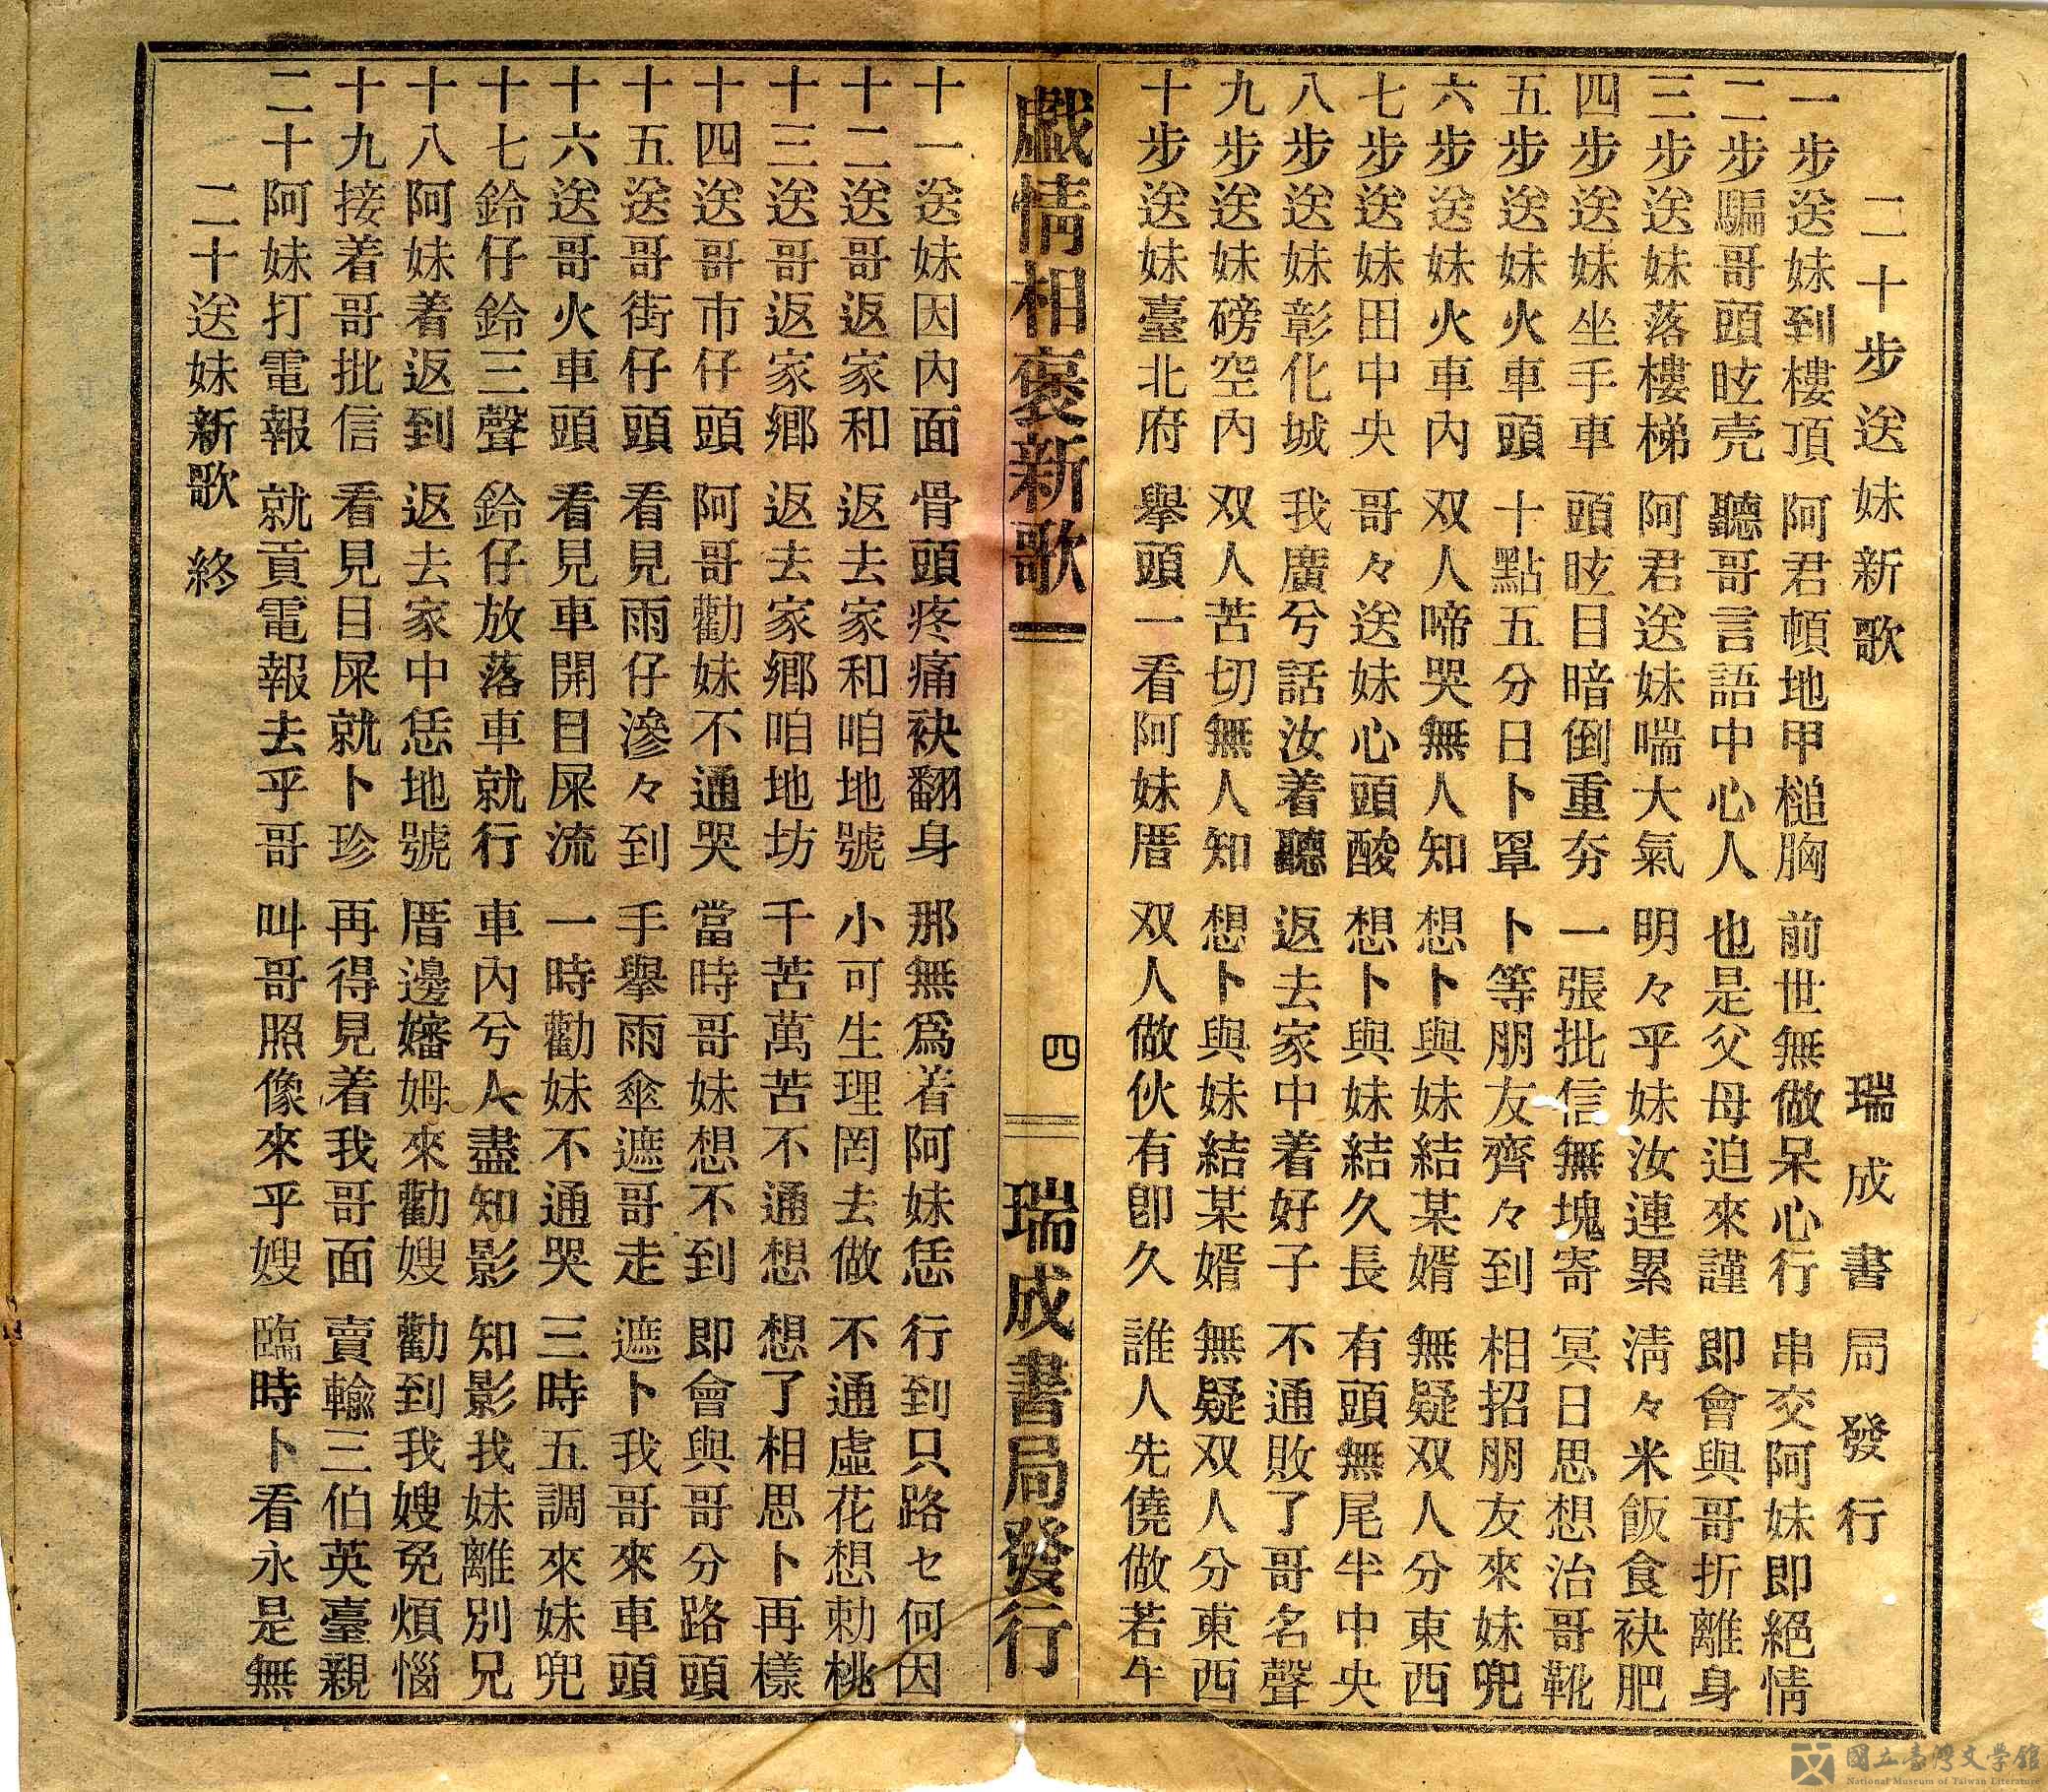 二十步送妹新歌 瑞成書局發行
一步送妹到樓頂 阿君頓地甲槌胸 前世無做呆心行 串交阿妹即絕情
二步騙哥頭眩壳 聽哥言語中心人 也是父母迫來謹 即會與哥折離身
三步送妹落樓梯 阿君送妹喘大氣 明々乎妹汝連累 淸々米飯食袂肥
四步送妹坐手車 頭眩目暗倒重夯 一張批信無塊寄 冥日思想治哥靴
五步送妹火車頭 十點五分日卜罩 卜等朋友齊々到 相招朋友來妹兜
六步送妹火車內 双人啼哭無人知 想卜與妹結某婿 無疑双人分東西
七步送妹田中央 哥々送妹心頭酸 想卜與妹結久長 有頭無尾半中央
八步送妹彰化城 我廣兮話汝着聽 返去家中着好子 不通敗了哥名聲
九步送妹磅空內 双人苦切無人知 想卜與妹結某婿 無疑双人分東西
十步送妹臺北府 擧頭一看阿妹厝 双人做伙有卽久 誰人先僥做若牛
戲情相褒新歌 四 瑞成書局發行
十一送妹因內面 骨頭疼痛袂翻身 那無爲着阿妹恁 行到只路セ何因
十二送哥返家和 返去家和咱地號 小可生理罔去做 不通虛花想勅桃
十三送哥返家鄉 返去家鄉咱地坊 千苦萬苦不通想 想了相思卜再樣
十四送哥市仔頭 阿哥勸妹不通哭 當時哥妹想不到 即會與哥分路頭
十五送哥街仔頭 看見雨仔滲々到 手擧雨傘遮哥走 遮卜我哥來車頭
十六送哥火車頭 看見車開目屎流 一時勸妹不通哭 三時五調來妹兜
十七鈴仔鈴三聲 鈴仔放落車就行 車內兮人盡知影 知影我妹離別兄
十八阿妹着返到 返去家中恁地號 厝邊嬸姆來勸嫂 勸到我嫂免煩惱
十九接着哥批信 看見目屎就卜珍 再得見着我哥面 賣輸三伯英臺親
二十阿妹打電報 就貢電報去乎哥 叫哥照像來乎嫂 臨時卜看永是無
二十送妹新歌 終
國立臺灣文學館
National Museum of Taiwan Literature